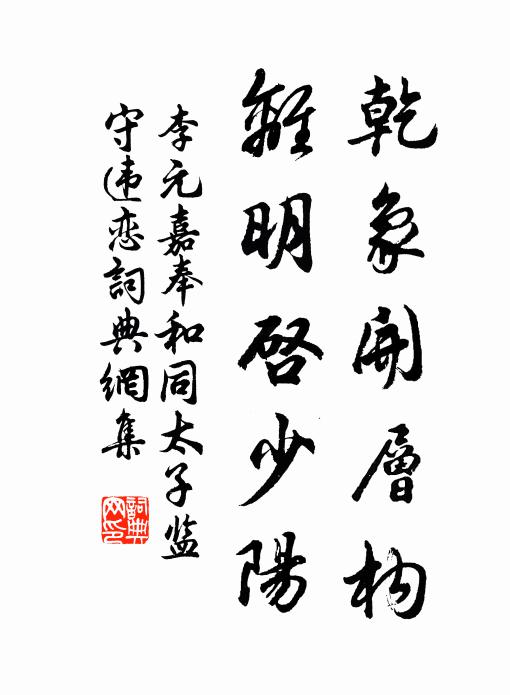 乾象開層构
離明啓少陽
李元嘉奉和同太子监
守违恋詞典網集
詞典
网印